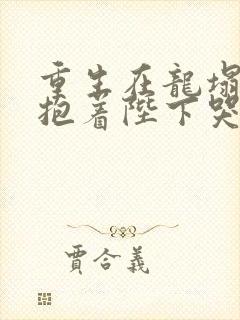 重生在龍塌
抱着陛下哭
賈合義